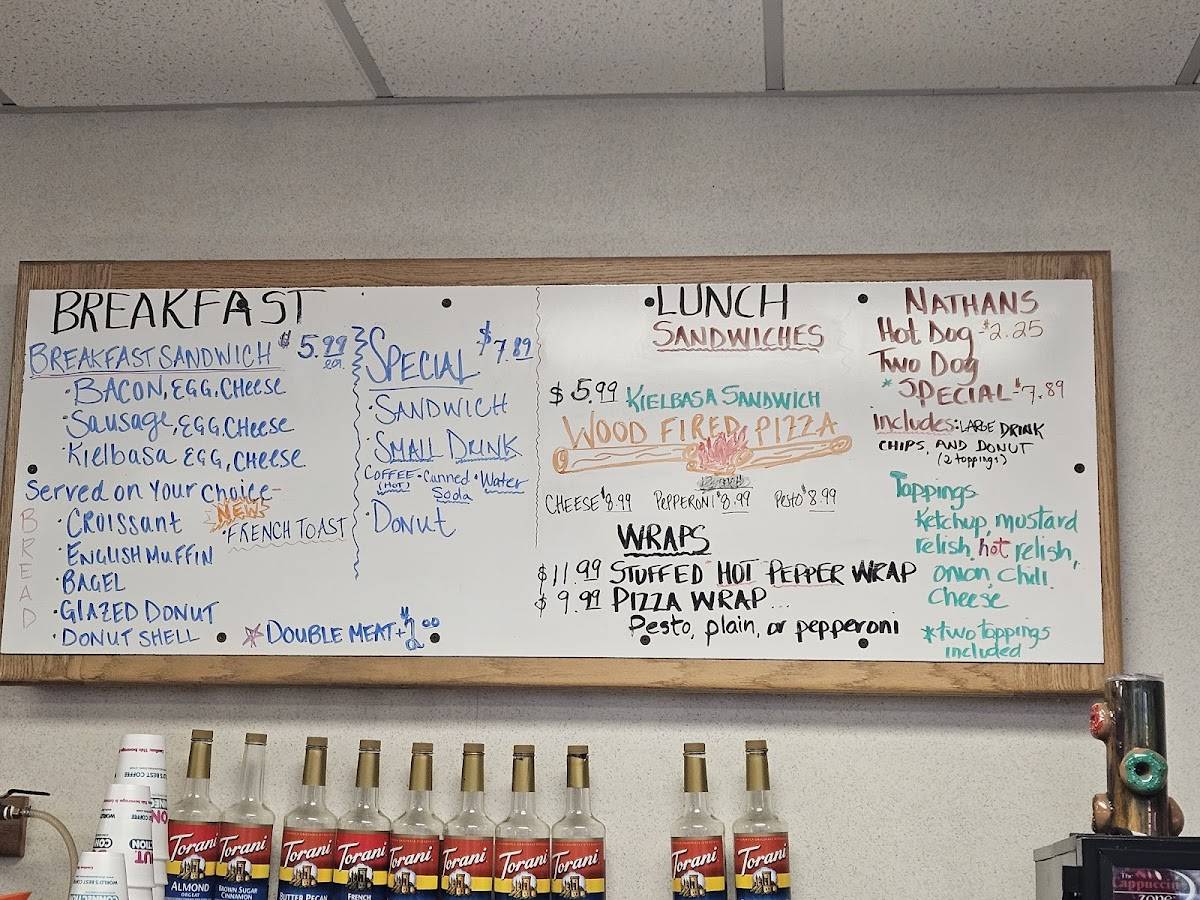 BREAKFAST
BREAKFAST SANDWICH $5.99 ea.
• BACON, EGG, CHEESE
• Sausage, EGG, CHEESE
• Kielbasa EGG, CHEESE
Served on Your Choice-
BREAD
• CROISSANT
NEW
• FRENCH TOAST
• ENGLISH MUFFIN
• BAGEL
• GLAZED DONUT
• DONUT SHELL
SPECIAL $7.89
• SANDWICH
• SMALL DRINK
COFFEE • Canned • Water
(HOT) Soda
• DONUT
DOUBLE MEAT +$2.00
LUNCH
SANDWICHES
$5.99 KIELBASA SANDWICH
WOOD FIRED PIZZA
CHEESE $8.99 PEPPERONI $8.99 PESTO $8.99
WRAPS
$11.99 STUFFED HOT PEPPER WRAP
$9.99 PIZZA WRAP...
Pesto, plain, or pepperoni
NATHANS
Hot Dog - $2.25
Two Dog
*SPECIAL - $7.89
includes: LARGE DRINK
CHIPS, AND DONUT
(2 toppings)
Toppings
Ketchup, mustard
relish, hot relish,
onion, chili
cheese
*two toppings
included
Torani
ALMOND
ORGEAT
Torani
BROWN SUGAR
CINNAMON
Torani
BUTTER PECAN
Torani
FRENCH
Torani
Torani
Torani
Torani
Torani
Torani
The
Cappuccino
ZONE